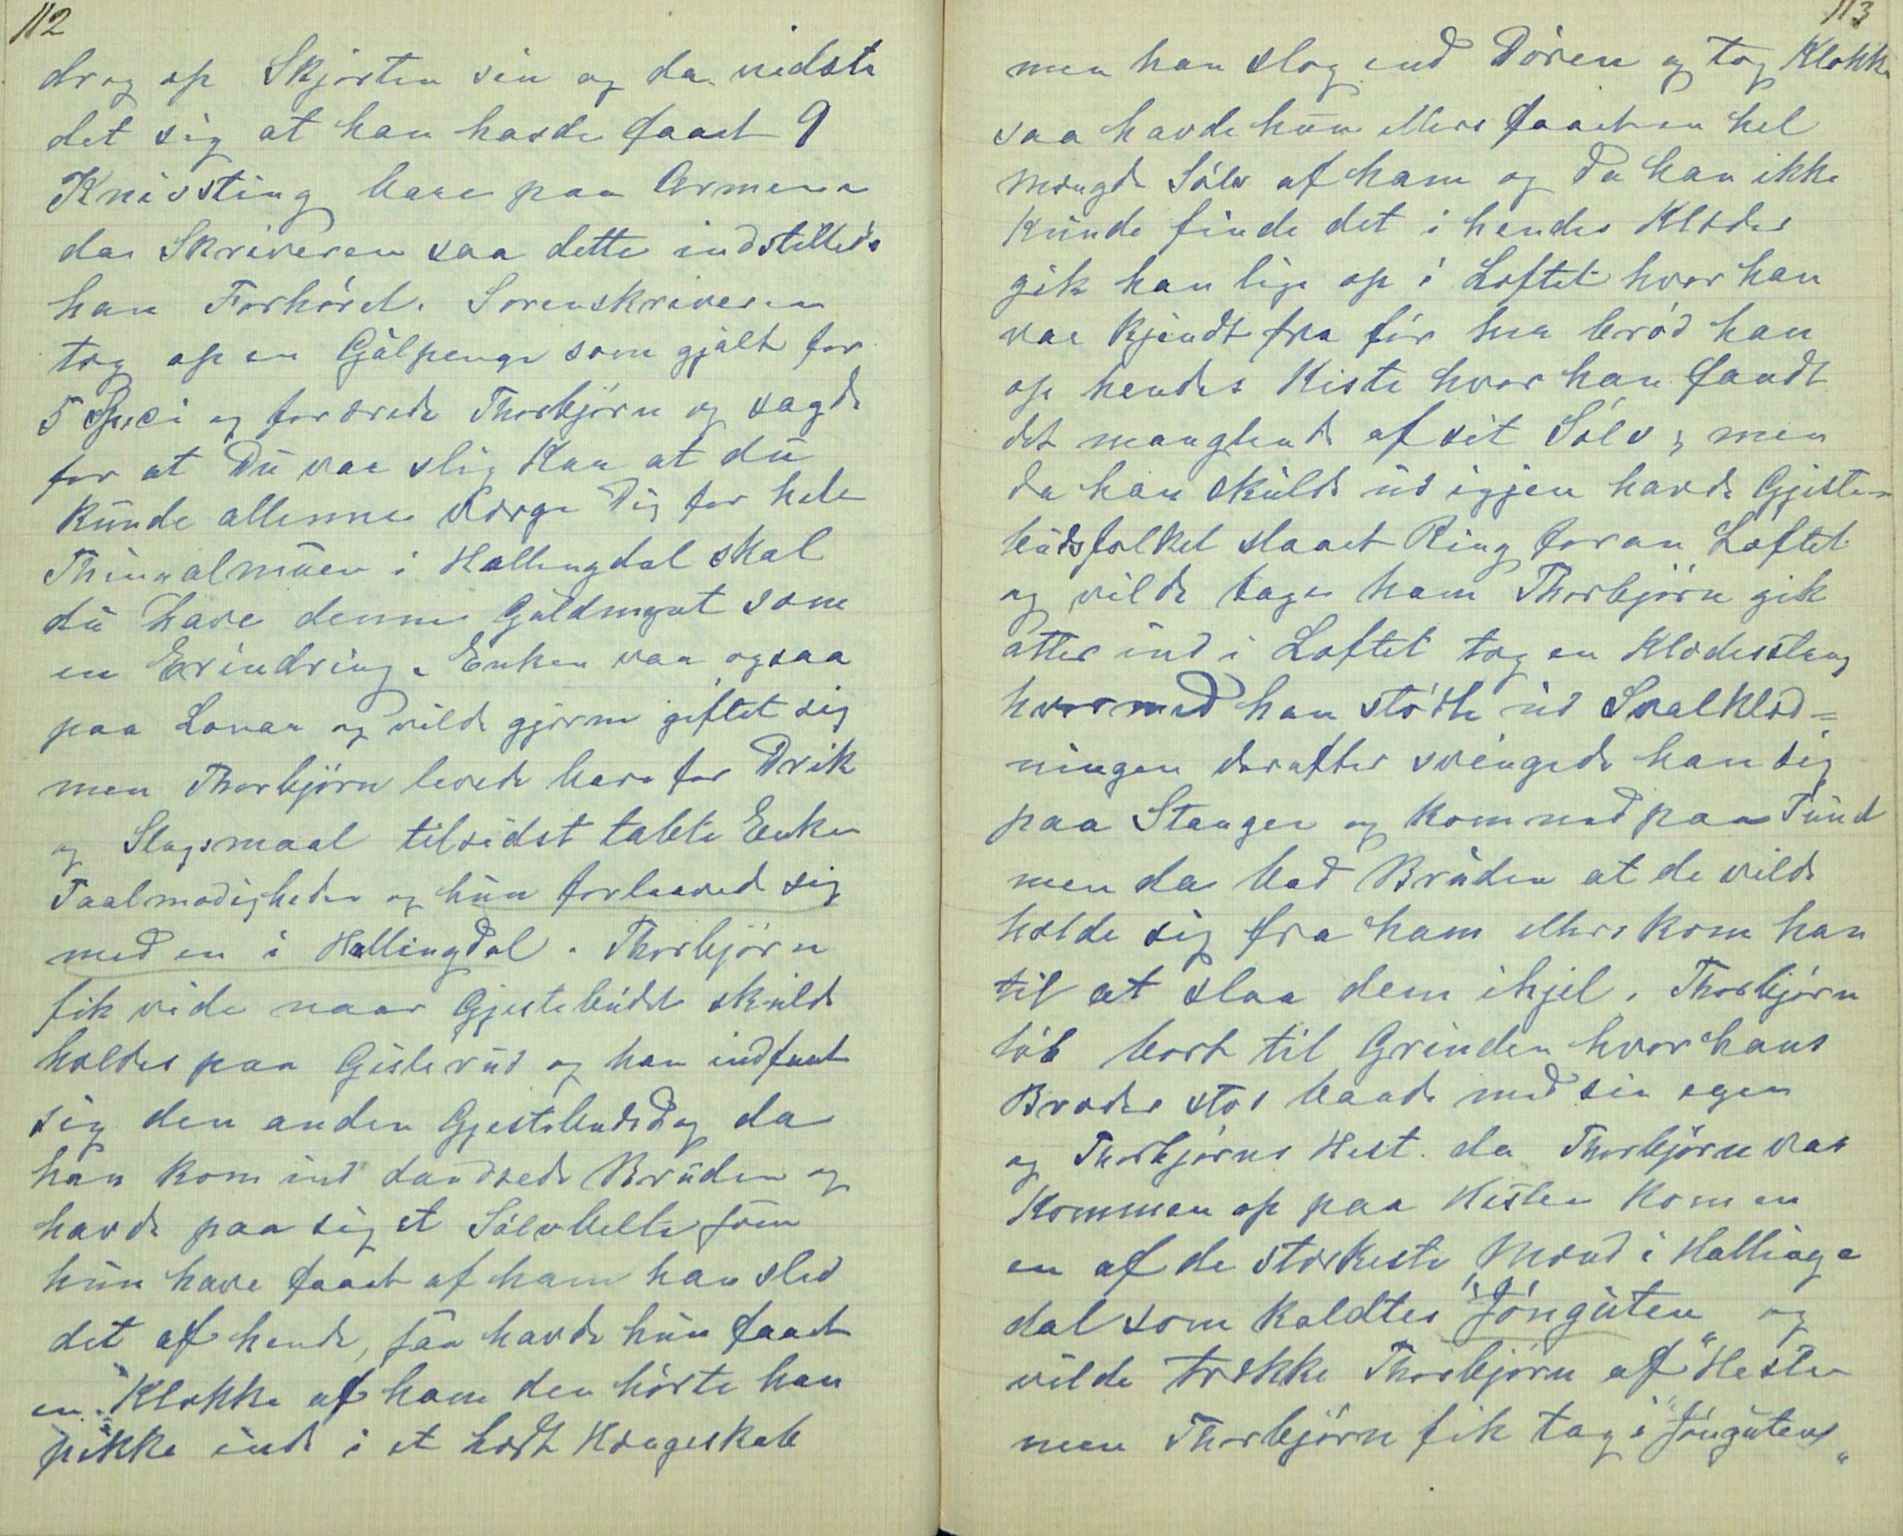 112
drog op Skjorten sin og da vidste
det sig at han havde faaet 9
Knivsting bare paa Armene
da Skriveren saa dette indstillede
han Forhöret. Sorenskriveren
tog op en Gulpenge som gjalt for
5 Speci og forærede Thorbjörn og sagde
for at Du var slig Kar at du
kunde allenne værge Dig for hele
Thingalmuen i Hallingdal skal
du have denne Guldmynt som
en Erindring. Enken var ogsaa
paa Lovar og vilde gjerne giftet sig
men Thorbjörn levede bare for Drik
og Slagsmaal tilsidst tabte Enken
Taalmodigheden og hun forlaaved sig
med en i Hallingdal. Thorbjörn
fik vide naar Gjestebudet skulde
holdes paa Gislerud og han indfant
sig den anden Gjestebudsdag da
han kom ind dandsede Bruden og
havde paa sig et Sölvbelte som
hun have faaet af ham han sled
det af hende, saa havde hun faaet
en Klokke af ham den hörte han
pikke inde i et Lædt Hængeskab
113
men han slog ind Dören og tog Klokke
saa havde hun ellers faaet en hel
Mængde Sölv af ham og da han ikke
kunde finde det i hendes Klæder
gik han lige op i Loftet hvor han
var kjendt fra för her bröd han
op hendes Kiste hvor han fandt
det manglende af sit Sölv, men
da han skulde ud igjen havde Gjeste-
budsfolket slaaet Ring foran Loftet
og vilde tage ham Thorbjörn gik
atter ind i Loftet tog en Klædesstang
hvormed han stödte ud Svalklæd=
ningen derefter svingede han sig
paa Stangen og kom ned paa Tunet
men da bad Bruden at de vilde
holde sig fra ham ellers kom han
til at slaa dem ihjel. Thorbjörn
löb bort til Grinden hvor hans
Broder stod baade med sin egen
og Thorbjörns Hest. da Thorbjörn var
kommen op paa Hesten kom en
en af de stærkeste Mænd i Hallinge
dal som kaldtes "Jönguten" og
vilde trække Thorbjörn af Hesten
men Thorbjörn fik tag i "Jöngutens"